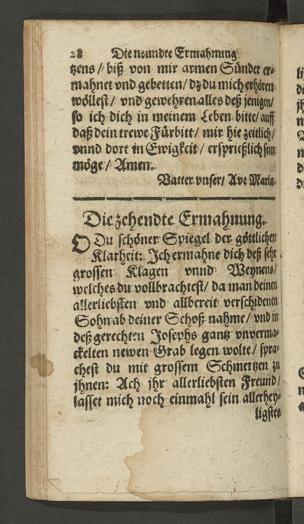 28 Die neundte Ermahnung
tzens / biß von mir armen Sünder er-
mahnet vnd gebetten / dz du mich erhören
wöllest / vnd gewehren alles deß jenigen /
so ich dich in meinem Leben bitte / auff
daß dein trewe Fürbitt / mir hie zeitlich /
vnnd dort in Ewigkeit / ersprießlich sein
möge / Amen.
Vatter vnser / Ave Maria.
Die zehendte Ermahnung.
O Du schöner Spiegel der göttlichen
Klarheit: Ich ermahne dich deß sehr
grossen Klagen vnnd Weynens /
welches du vollbrachtest / da man deinen
allerliebsten vnd allbereit verschidenen
Sohn ab deiner Schoß nahme / vnd in
deß gerechten Josephs gantz vnverma-
ckelten newen Grab legen wolte / spra-
chest du mit grossem Schmertzen zu
jhnen: Ach jhr allerliebsten Freund /
lasset mich noch einmahl sein allerhey-
ligstes